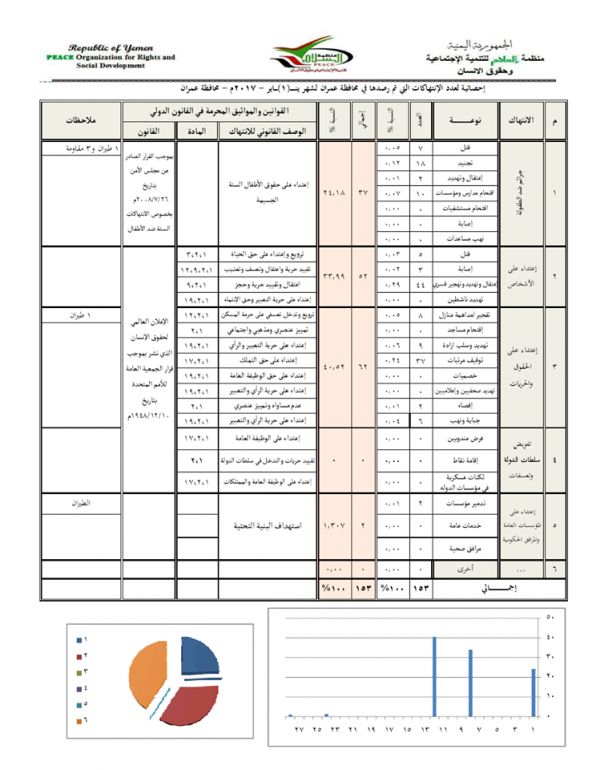 Republic of Yemen
PEACE Organization for Rights and
Social Development
الجمهورية اليمنية
منظمة السلام للتنمية الإجتماعية
وحقوق الانسان
إحصائية لعدد الإنتهاكات التي تم رصدها في محافظة عمران لشهر ينـ(١)ـاير - ٢٠١٧م - محافظة عمران
م الانتهاك نوعـــــة العدد النسبة % إجمالي النسبة % القوانين والمواثيق المحرمة في القانون الدولي ملاحظات
الوصف القانوني للإنتهاك المادة القانون
١ جرائم ضد الطفولة
قتل ٧ ٠,٠٥
تجنيد ١٨ ٠,١٢
إعتقال وتهديد ٢ ٠,٠١
اقتحام مدارس ومؤسسات ١٠ ٠,٠٧
اقتحام مستشفيات ٠ ٠,٠٠
إصابة ٠ ٠,٠٠
نهب مساعدات ٠ ٠,٠٠
٣٧ ٢٤,١٨
إعتداء على حقوق الأطفال الستة
الجسيمة
بموجب القرار الصادر
عن مجلس الأمن
بتاريخ
٢٠٠٨/٧/٢٦م
بخصوص الانتهاكات
الستة ضد الأطفال
١ طيران و ٣ مقاومة
٢ إعتداء على
الأشخاص
قتل ٥ ٠,٠٣ ترويع وإعتداء على حق الحياة ٣،٢،١
إصابة ٣ ٠,٠٢ تقييد حرية واعتقال وتعسف وتعذيب ١٢،٩،٢،١
إعتقال وتهديد وتهجير قسري ٤٤ ٠,٢٩ اعتقال وتقييد حرية وحجز ٩،٢،١
تهديد ناشطين ٠ ٠,٠٠ إعتداء على حرية التعبير وحق الإنتماء ١٩،٢،١
٥٢ ٣٣,٩٩
٣ إعتداء على
الحقوق
والحريات
تفجير /مداهمة منازل ٨ ٠,٠٥ ترويع وتدخل تعسفي على حرمة المسكن ١٢،٢،١
إقتحام مساجد ٠ ٠,٠٠ تمييز عنصري ومذهبي واجتماعي ٢،١
تهديد وسلب ارادة ٩ ٠,٠٦ إعتداء على حرية التعبير والرأي ١٩،٢،١
توقيف مرتبات ٣٧ ٠,٢٤ إعتداء على حق التملك ١٧،٢،١
خصميات ٠ ٠,٠٠ إعتداء على حق الوظيفة العامة ١٩،٢،١
تهديد صحفيين وإعلاميين ٠ ٠,٠٠ إعتداء على حرية الرأي والتعبير ١٩،٢،١
إقصاء ٢ ٠,٠١ عدم مساواه وتمييز عنصري ٢،١
جباية ونهب ٦ ٠,٠٤ إعتداء على حرية الرأي والتعبير ١٩،٢،١
٦٢ ٤٠,٥٢
الإعلان العالمي
لحقوق الإنسان
الذي نشر بموجب
قرار الجمعية العامة
للأمم المتحدة
بتاريخ
١٩٤٨/١٢/١٠م
١ طيران
٤ تفويض
سلطات الدولة
وتعسفات
فرض مندوبين ٠ ٠,٠٠ إعتداء على الوظيفة العامة ١٧،٢،١
إقامة نقاط ٠ ٠,٠٠ تقييد حريات والتدخل في سلطات الدولة ٢،١
ثكنات عسكرية
في مؤسسات الدوله ٠ ٠,٠٠ إعتداء على الوظيفة العامة والممتلكات ١٧،٢،١
٠ ٠
٥ إعتداء على
المؤسسات العامة
والمرافق الحكومية
تدمير مؤسسات ٢ ٠,٠١
خدمات عامة ٠ ٠,٠٠
مرافق صحية ٠ ٠,٠٠
٢ ١,٣٠٧ استهداف البنية التحتية الطيران
٦ ... أخرى ٠ ٠,٠٠ ٠ ٠,٠٠
إجمـــــالي ١٥٣ %١٠٠ ١٥٣ %١٠٠
١
٢
٣
٤
٥
٦
٥٠
٤٠
٣٠
٢٠
١٠
٠
٢٧ ٢٥ ٢٣ ٢١ ١٩ ١٧ ١٥ ١٣ ١١ ٩ ٧ ٥ ٣ ١